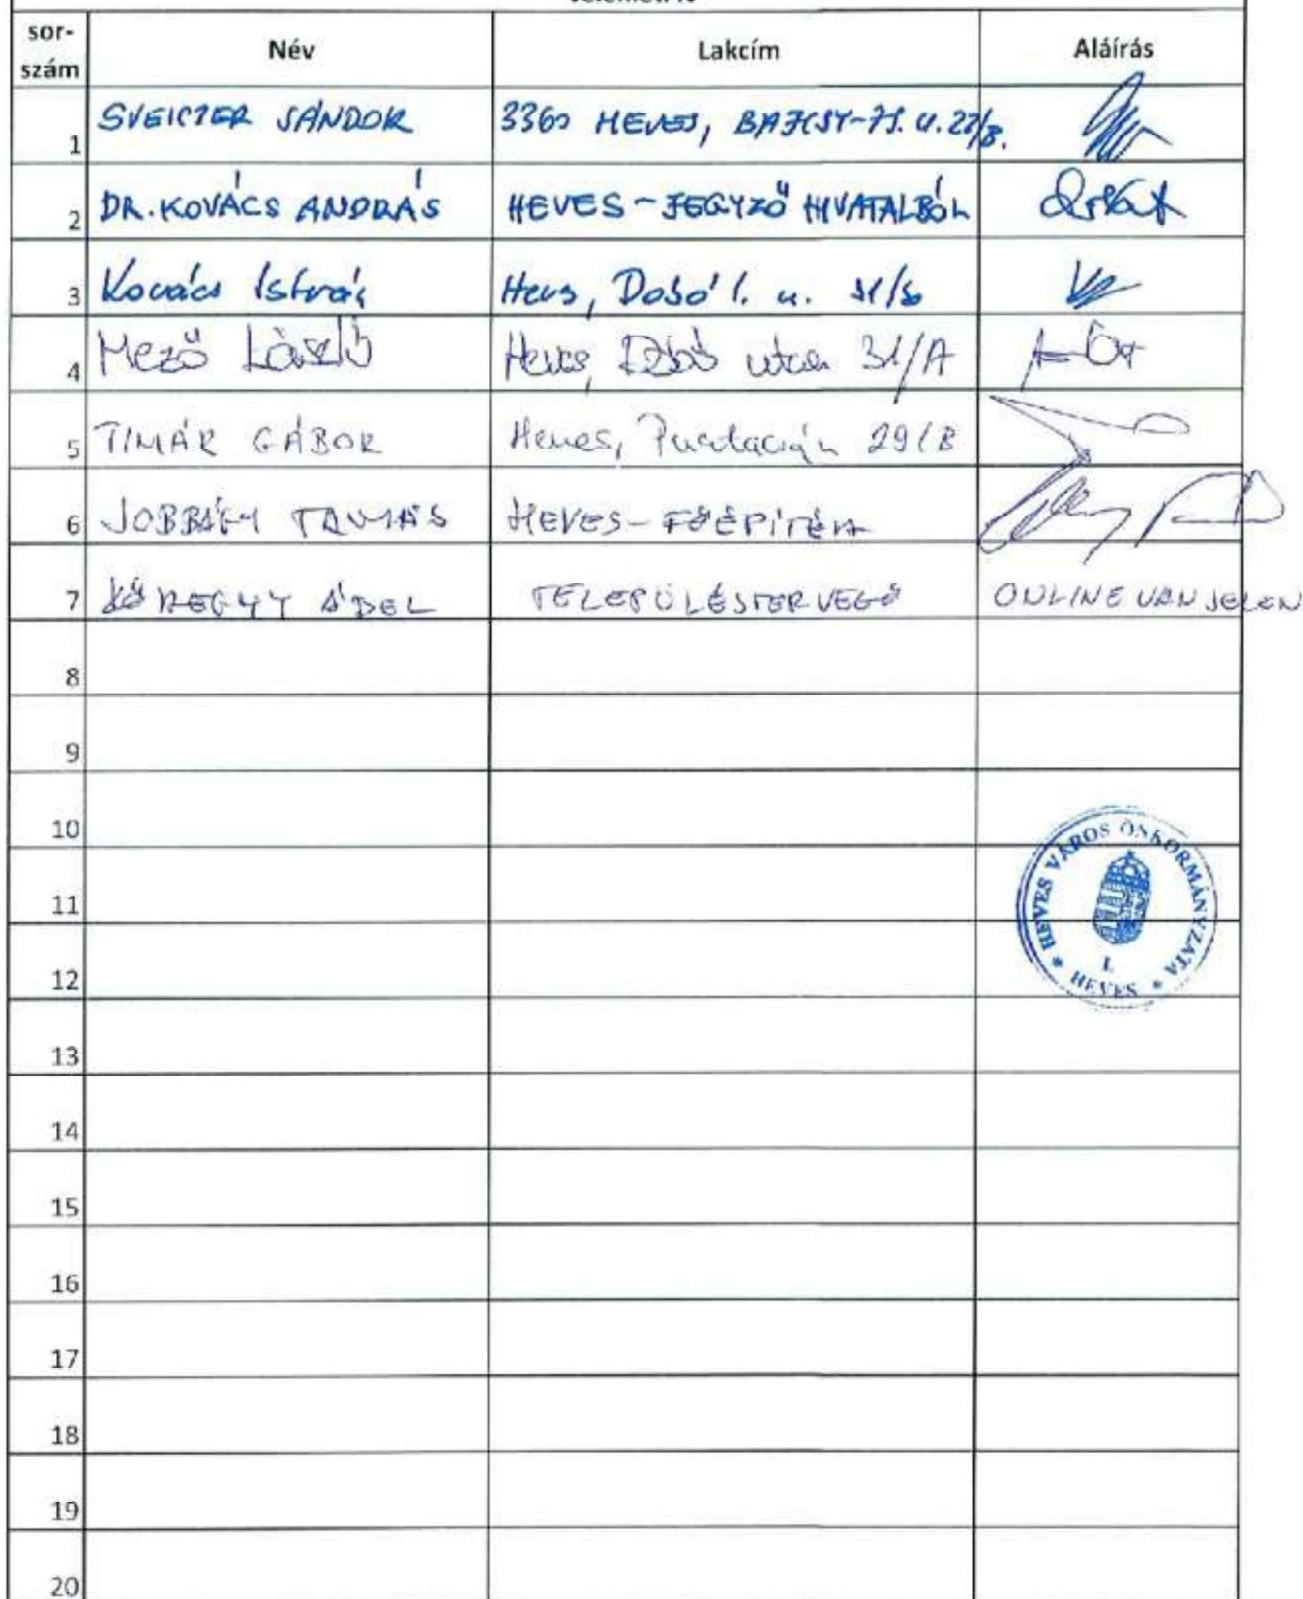 sor-
szám Név Lakcím Aláírás
1 SVEICZER SÁNDOR 3360 HEVES, BAJCSY-ZS. U. 22/B.
2 DR. KOVÁCS ANDRÁS HEVES - JEGYZŐ HIVATALBÓL
3 Kovács István Heves, Dobó I. u.
4 Mező László Heves, Dobó utca 31/A
5 TIMÁR GÁBOR Heves, 29/B
6 JOBBÁGY TAMÁS HEVES - FŐÉPÍTÉSZ
7 KŐHEGYY ADÉL TELEPÜLÉSTERVEZŐ ONLINE VAN JELEN
8
9
10
11
12
13
14
15
16
17
18
19
20
* HEVES VÁROS ÖNKORMÁNYZATA *
I.
HEVES